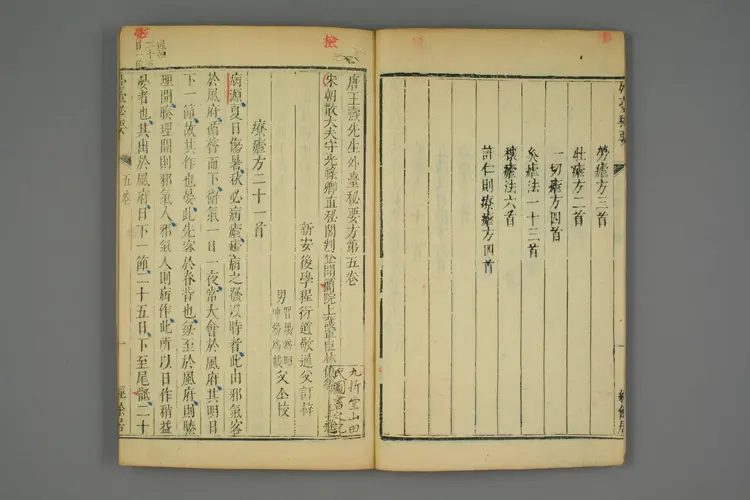 勞瘧方三首
牡瘧方二首
一切瘧方四首
灸瘧法一十三首
禳瘧法六首
許仁則療瘧方四首
外臺秘要
經餘居
唐王燾先生外臺秘要方第五卷
宋朝散大夫守光祿卿直秘閣判登聞檢院上護軍臣林億等上進
新安後學程衍道敬通父訂梓
九折堂山田
氏圖書之記
療瘧方二十一首
病源夏日傷暑秋必病瘧瘧病之發以時者此由邪氣客
於風府循膂而下衛氣一日一夜常大會於風府其明日
下一節故其作也晏此先客於脊背也每至於風府則腠
理開腠理開則邪氣入邪氣入則病作此所以日作稍益
晏者也其出於風府日下一節二十五日下至尾骶二十
五卷
一
經餘居